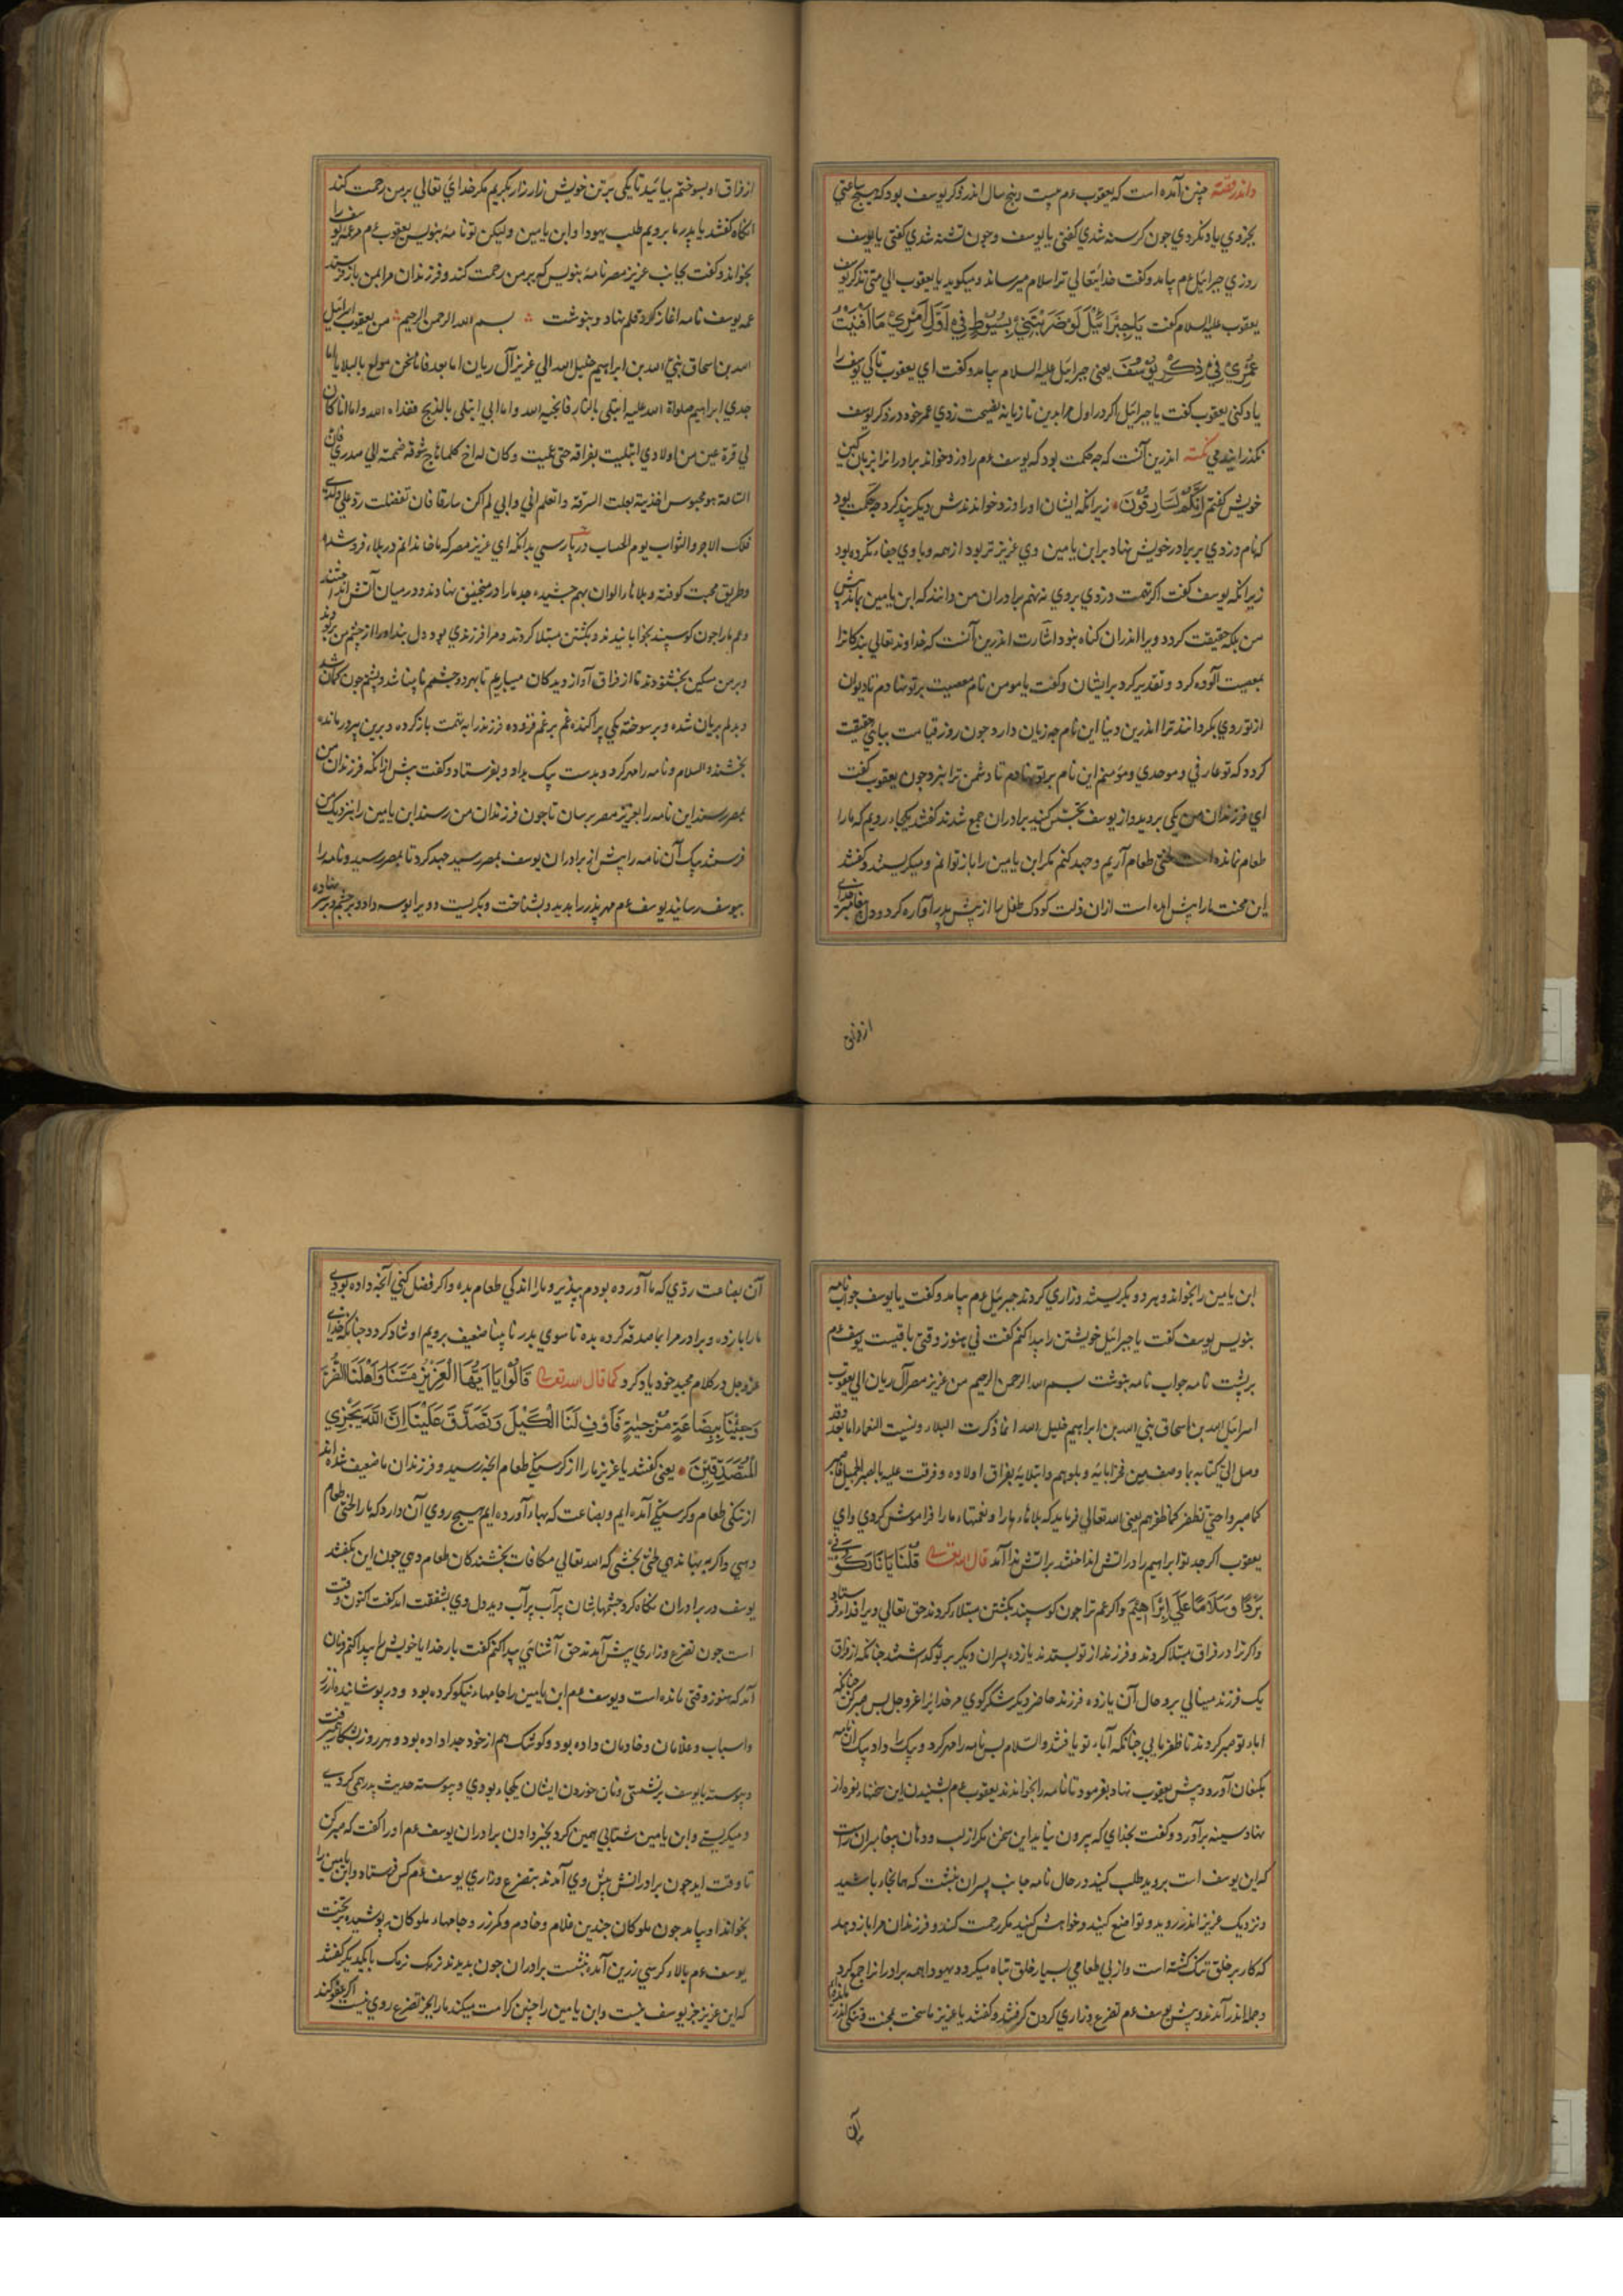 واندر قصّه چنین آمده است که یعقوب عم بیست و پنج سال اندر ذکر یوسف بود که هیچ ساعتی
بخودی یاد نکردی جون کرسنه شدی کفتی یا یوسف و جون تشنه شدی کفتی یا یوسف
روزی جبرائیل عم بیامد و کفت خدایتعالی ترا سلام میرساند و میکوید یا یعقوب الی متی تذکر یوسف
یعقوب علیه السلام کفت یَا جِبْرَائِیْلَ لَوْ ضَرَبْتَنِیْ بِسُیُوْطٍ فِیْ اَوَّلِ اَمْرِیْ مَا اَفْنَیْتُ
عُمْرِیْ فِیْ ذِکْرِ یُوْسُفَ یعنی جبرائیل علیه السلام بیامد و کفت ای یعقوب تا کی یوسف را
یاد کنی یعقوب کفت یا جبرائیل اکر در اول مرا بدین تازیانه نصیحت زدی عمر خود در ذکر یوسف
نکذرانیدمی نکته اندرین آنست که چه حکمت بود که یوسف عم را دزد خواند برادرانرا بزبان
خویش کفتم اِنَّکُمْ لَسَارِقُوْنَ زیرا نکه ایشان او را دزد خواندندش دیکر چه حکمت بود
که نام دزدی بر برادر خویش نهاد بر ابن یامین وی عزیز تر بود از همه و با وی جفاء نکرده بود
زیرا نکه یوسف کفت اکر تهمت دزدی بر وی نه نهم برادران من دانند که ابن یامین
من بلکه حقیقت کردد ویرا اندران کناه نبود اشارت اندرین آنست که خداوند تعالی بندکانرا
بمعصیت آلوده کرد و تقدیر کرد بر ایشان و کفت یا مومن نام معصیت بر تو نهادم تا دیوان
از تو روی بکردانند ترا اندرین دنیا این نام چه زیان دارد جون روز قیامت بیائی حقیقت
کردد که تو عارفی و موحدی و مؤمنم این نام بر تو نهادم تا دشمن ترا نبرد جون یعقوب کفت
ای فرزندان من یکی بروید و از یوسف تجسّس کنید برادران جمع شدند کفتند یکجاء رویم که ما را
طعام نمانده است لختی طعام آریم و جهد کنم مکر ابن یامین را باز توانم و میکریستند و کفتند
این محنت ما را پیش امده است ازان ذلت کودک طفل را از پیش پدر آواره کرد و دل پیغامبر خدای
از فراق
از فراق او بسوختم بیائید تا یکی بر تن خویش زار زار بکریم مکر خدای تعالی بر من رحمت کند
انکاه کفتند یا پدر ما برویم طلب یهودا و ابن یامین ولیکن تو نامهٔ بنویس یعقوب عم مر عمه یوسف را
بخواند و کفت بجانب عزیز مصر نامهٔ بنویس که بر من رحمت کند و فرزندان مرا بمن باز فرستد
عمه یوسف نامه اغاز کرد قلم نهاد و بنوشت بسم الله الرحمن الرحیم من یعقوب اسرائیل
الله بن اسحاق نبی الله بن ابراهیم خلیل الله الی عزیز آل ریان اما بعد فانا نحن مولع بالبلایا اما
جدی ابراهیم صلواة الله علیه ابتلی بالنار فانجیه الله و اما ابی ابتلی بالذبح ففداه الله و اما انا کان
لی قرة عین من اولادی ابتلیت بفراقه حتی عمیت و کان له اخ کلما هاج شوقه ضمته الی صدری فان
الساعة هو محبوس اخذیته بعلت السرقة و اتعلم انی و ابی لم اکن سارقا فان تفضلت ردّ علی ولدی
فلک الاجر و الثواب یوم الحساب در پارسی بدانکه ای عزیز مصر که ما خاندانم در بلاء فرو شده
و طریق محبت کوفته و بلاءها را الوان بهم چشیده جد ما را در منجنیق نهادند و در میان آتش انداختند
و عم ما را جون کوسپند بخوابانیدند و بکشتن مبتلا کردند و مرا فرزندی بود دل بند او را از چشم من بردند
و بر من مسکین بخشودند تا از فراق آواز و دیدکان میباریم تا بهر دو چشم نابینا شد و پشتم جون کمان شد
و بدلم بریان شده و بر سوخته یکی پراکنده غم بر غم فزوده فرزند را به تهمت باز کرده و برین پیر درمانده
بخشنده السلام و نامه را مهر کرد و بدست پیک بداد و بفرستاد و کفت پیش ازانکه فرزندان من
بمصر رسند این نامه را بعزیز مصر برسان تا جون فرزندان من رسند ابن یامین را بنزدیک من
فرستد پیک آن نامه را پیش از برادران یوسف بمصر رسید جهد کرد تا بمصر رسید و نامه را
بیوسف رسانید یوسف عم مهر پدر را بدید و بشناخت و بکریست و ویرا بوسه داد و بر چشم و بر سر نهاده
ابن یامین را بخواند و هر دو بکریستند و زاری کردند جبرئیل عم بیامد و کفت یا یوسف جواب نامه
بنویس یوسف کفت یا جبرائیل خویشتن را پیدا کنم کفت نی هنوز وقتی باقیست یوسف عم
بر پشت نامه جواب نامه بنوشت بسم الله الرحمن الرحیم من عزیز مصر آل ریان الی یعقوب
اسرائیل الله بن اسحاق نبی الله بن ابراهیم خلیل الله اما ذکرت البلاء و نسیت النعماء اما بعد فقد
وصل الیّ کتابه بما وصف من آبایه و بلوهم و ابتلایه بفراق اولاده و فرقت علیه بالصبر الجمیل فاصبر
کما صبروا حتی تظفر کما ظفرهم یعنی الله تعالی فرماید که بلاءها ما را و نعمتهاء ما را فراموش کردی و ای
یعقوب اکر جد تو ابراهیم را در آتش انداختند بر آتش ندا آمد قال الله تعالی قُلْنَا یَا نَارُ کُوْنِیْ
بَرْدًا وَسَلَامًا عَلَی اِبْرَاهِیْمَ و اکر عم ترا جون کوسپند بکشتن مبتلاء کردند حق تعالی ویرا فداء فرستاد
و اکر ترا در فراق مبتلا کردند و فرزند از تو بستدند یازده پسران دیکر بر تو کذاشتند جنانکه از فراق
یک فرزند مینالی بر وحال آن یازده فرزند حاضر دیکر شکر کوی مر خدایرا عز و جل بس صبر کن جنانکه
اباء تو صبر کردند تا ظفر یابی جنانکه آباء تو یافتند والسلام بس نامه را مهر کرد و پیک را داد پیک ان نامه
بکنعان آورد و پیش یعقوب نهاد بفرمود تا نامه را بخواندند یعقوب عم بشنیدن این سخنها نعره از
نهاد سینه برآورد و کفت بخدای که بیرون نیاید این سخن مکر از لب و دهان پیغامبران راست
که این یوسف است بروید طلب کنید در حال نامه جانب پسران نبشت که همانجاء باشید
و نزدیک عزیز اندر روید و تواضع کنید و خواهش کنید مکر رحمت کند و فرزندان مرا باز دهد
که کار بر خلق تنک کشته است و از بی طعامی بسیار خلق تباه میکردد یهودا همه برادرانرا جمع کرد
و جمله اندر آمدند و پیش یوسف عم تضرع و زاری کردن کرفتند و کفتند یا عزیز ما سخت بمحنت و تنکی اندر ماندیم
آن
آن بضاعت ردّی که ما آورده بودم بپذیر و ما را اندکی طعام بده و اکر فضل کنی آنچه داده بودی
ما را باز ده و برادر مرا بما صدقه کرده بده تا سوی پدر نابینا ضعیف برویم او شاد کردد جنانکه خدای
عز و جل در کلام مجید خود یاد کرد کما قال الله تعالی قَالُوْا یَا اَیُّهَا الْعَزِیْزُ مَسَّنَا وَاَهْلَنَا الضُّرُّ
وَجِئْنَا بِبِضَاعَةٍ مُزْجٰیةٍ فَاَوْفِ لَنَا الْکَیْلَ وَتَصَدَّقَ عَلَیْنَا اِنَّ اللّٰهَ یَجْزِی
الْمُتَصَدِّقِیْنَ یعنی کفتند یا عزیز ما را از کرسنکی طعام انچه رسید و فرزندان ما ضعیف شده اند
از تنکی طعام و کرسنکی آمده ایم و بضاعت که بهاء آورده ایم هیچ روی آن دارد که ما را لختی طعام
دهی و اکر به بها ندهی لختی بخشی که الله تعالی مکافات بخشندکان طعام دهی جون این بکفتند
یوسف در برادران نکاه کرد چشمهایشان پر آب پر آب دید دل وی بشفقت امد کفت اکنون وقت
است جون تضرع و زاری پیش آمدند حق آشنائی پیدا کنم کفت بار خدایا خویش را پیدا کنم فرمان
آمد که هنوز وقتی مانده است و یوسف عم ابن یامین را جامهاء نیکو کرده بود و در پوشانیده از زر
و اسباب و غلامان و خادمان داده بود و کوشک هم از خود جدا داده بود و هر روز بشکار میرفت
و پیوسته با یوسف برنشستی و نان خوردن ایشان یکجاء بودی و پیوسته حدیث پدر همی کردی
و میکریستی و ابن یامین شتابی همین کرد بخبر دادن برادران یوسف عم او را کفت که صبر کن
تا وقت اید جون برادرانش پیش وی آمدند بتضرع و زاری یوسف عم کس فرستاد و ابن یامین را
بخواند او بیامد جون ملوکان چندین غلام و خادم و کمر زر و جامهاء ملوکان پوشیده بر تخت
یوسف عم بالاء کرسی زرین آمد بنشست برادران جون بدیدند نزیک نزیک با یکدیکر کفتند
که این عزیز جز یوسف نیست و ابن یامین را چنین کرامت میکند ما را بجز تضرع روی نیست اکر عفو کند